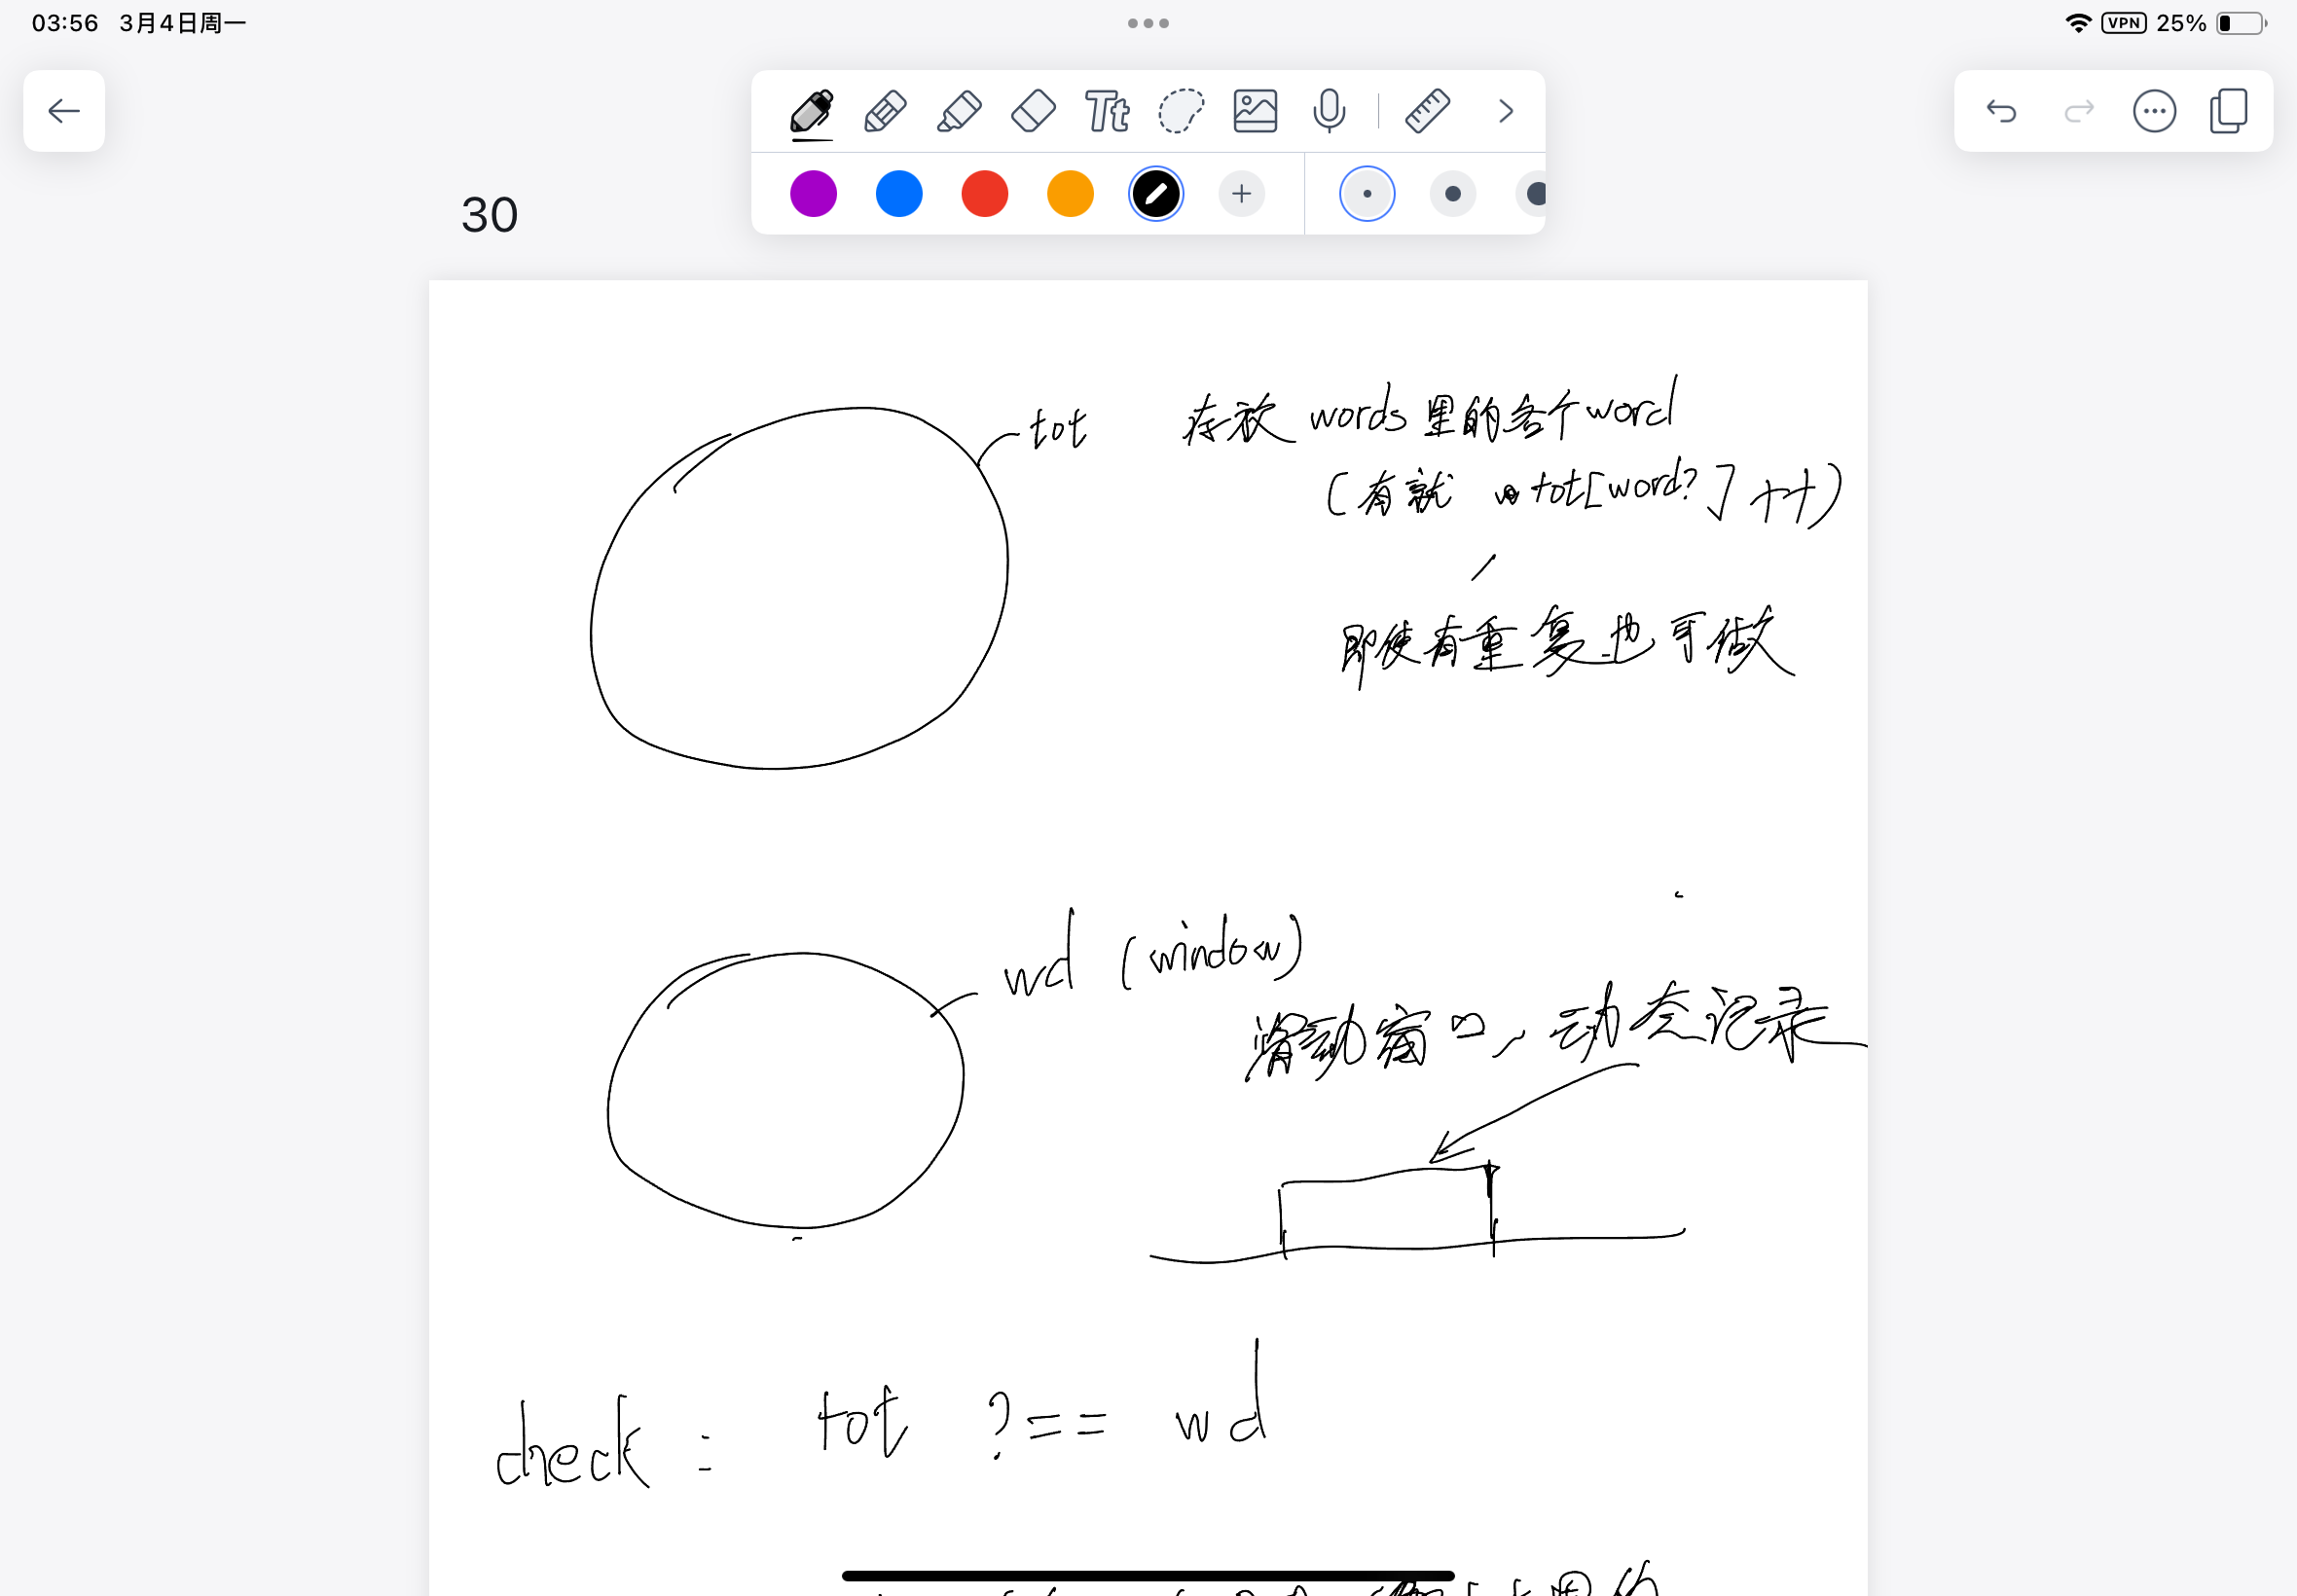 03:56 3月4日周一
VPN 25%
Tt
30
tot 存放 words 里的各个word
(有就 tot[word?]++)
即使有重复也可做
wd (window)
滑动窗口,动态记录
check: tot ?== wd